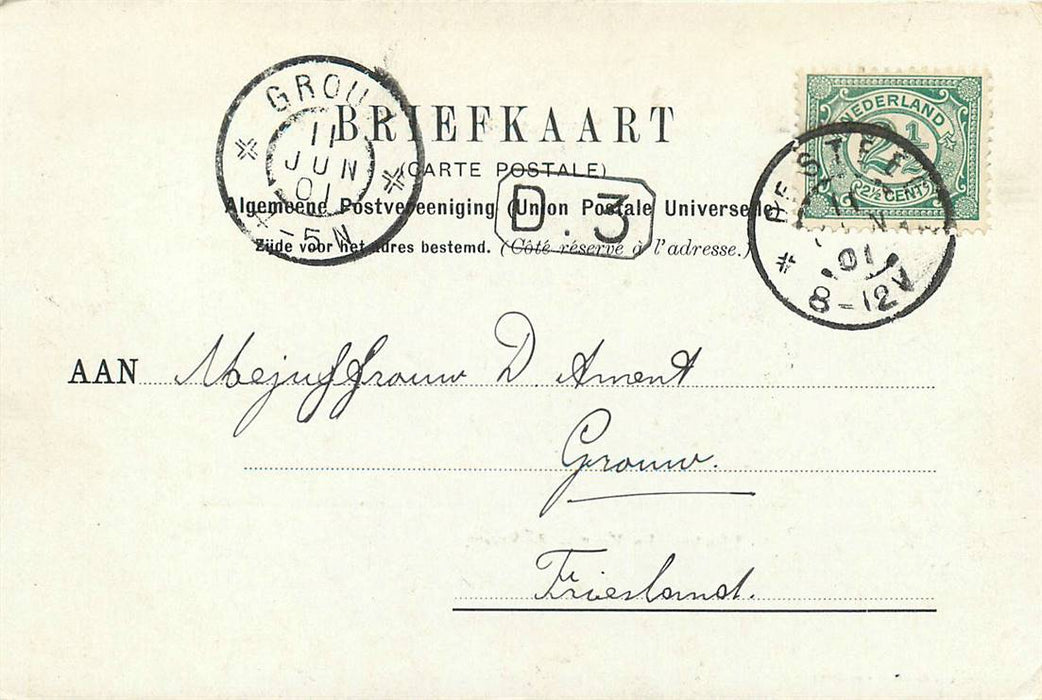 GROU
11
JUN
01
-5N
BRIEFKAART
(CARTE POSTALE)
Algemeene Postvereeniging (Union Postale Universelle)
Zijde voor het adres bestemd. (Côté réservé à l'adresse.)
D. 3
NEDERLAND
2½
2½ CENT
11
01
8-12V
AAN Mejuffrouw D. Ament
Grouw.
Friesland.